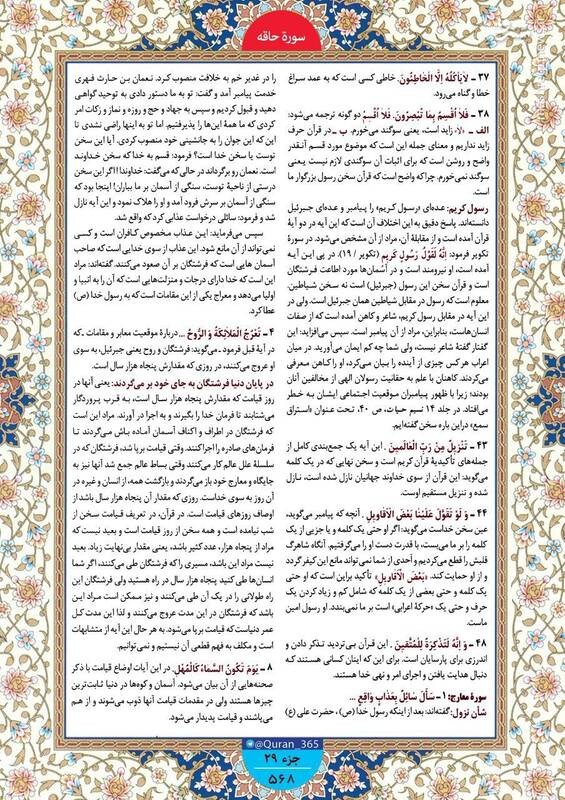 سورة حاقه
۳۷ ـ لَایَأْکُلُهُ إِلَّا الْخَاطِئُونَ. خاطی کسی است که به عمد سراغ
خطا و گناه می‌رود.
۳۸ ـ فَلَا أُقْسِمُ بِمَا تُبْصِرُونَ. فَلَا أُقْسِمُ دو گونه ترجمه می‌شود:
الف ـ «لا» زاید است، یعنی سوگند می‌خورم. ب ـ در قرآن حرف
زاید نداریم و معنای جمله این است که موضوع مورد قسم آنقدر
واضح و روشن است که برای اثبات آن سوگندی لازم نیست یعنی
سوگند نمی‌خورم. چرا که واضح است که قرآن سخن رسول بزرگوار ما
است.
رسول کریم: عده‌ای «رسول کریم» را پیامبر و عده‌ای جبرئیل
دانسته‌اند. پاسخ دقیق به این اختلاف آن است که این آیه در دو آیهٔ
قرآن آمده است و از مقابلهٔ آن، مراد از آن مشخص می‌شود. در سورهٔ
تکویر فرمود: إِنَّهُ لَقَوْلُ رَسُولٍ کَرِیمٍ (تکویر / ۱۹). در پی این آیه
آمده است، او نیرومند است و در آسمان‌ها مورد اطاعت فرشتگان
است و قرآن سخن این رسول (جبرئیل) است نه سخن شیاطین.
معلوم است که رسول در مقابل شیاطین همان جبرئیل است. ولی در
این آیه در مقابل رسول کریم، شاعر و کاهن آمده است که از صفات
انسان‌هاست، بنابراین، مراد از آن پیامبر است. سپس می‌افزاید: این
گفتار گفتهٔ شاعر نیست، ولی شما چه کم ایمان می‌آورید. در میان
اعراب هر کس چیزی از آینده را بیان می‌کرد، او را کاهن معرفی
می‌کردند. کاهنان با علم به حقانیت رسولان الهی از مخالفین آنان
بودند؛ زیرا با ظهور پیامبران موقعیت اجتماعی ایشان به خطر
می‌افتاد. در جلد ۱۴ نسیم حیات، ص ۴۰، تحت عنوان «استراق
سمع» در این باره سخن گفته‌ایم.
۴۳ ـ تَنْزِیلٌ مِنْ رَبِّ الْعَالَمِینَ. این آیه یک جمع‌بندی کامل از
جمله‌های تأکیدیهٔ قرآن کریم است و سخن نهایی که در یک کلمه
می‌گوید: این قرآن از سوی خداوند جهانیان نازل شده است، نازل
شده و تنزیل مستقیم اوست.
۴۴ ـ وَ لَوْ تَقَوَّلَ عَلَیْنَا بَعْضَ الْأَقَاوِیلِ. آنچه که پیامبر می‌گوید،
عین سخن خداست می‌گوید: اگر او حتی یک کلمه و یا جزیی از یک
کلمه را بر ما می‌بست، با قدرت دست او را می‌گرفتیم. آنگاه شاهرگ
قلبش را قطع می‌کردیم و احدی از شما نمی‌تواند مانع این کیفر گردد
و از او حمایت کند. «بَعْضَ الْأَقَاوِیلِ» تأکید براین است که او حتی
یک کلمه و حتی بعضی از یک کلمه که شامل کم و زیاد کردن یک
حرف و حتی یک «حرکهٔ اعرابی» است بر ما نمی‌بندد. او رسول امین
ماست.
۴۸ ـ وَ إِنَّهُ لَتَذْکِرَةٌ لِلْمُتَّقِینَ. این قرآن بی‌تردید تذکر دادن و
اندرزی برای پارسایان است. برای این که اینان کسانی هستند که
دنبال هدایت یافتن و اجرای امر و نهی خدا هستند.
سورهٔ معارج: ۱ ـ سَأَلَ سَائِلٌ بِعَذَابٍ وَاقِعٍ ...
شأن نزول: گفته‌اند: بعد از اینکه رسول خدا (ص)، حضرت علی (ع)
را در غدیر خم به خلافت منصوب کرد. نعمان بن حارث فهری
خدمت پیامبر آمد و گفت: تو به ما دستور دادی به توحید گواهی
دهید و قبول کردیم و سپس به جهاد و حج و روزه و نماز و زکات امر
کردی که ما همهٔ این‌ها را پذیرفتیم. اما تو به اینها راضی نشدی تا
این که این جوان را به جانشینی خود منصوب کردی. آیا این سخن
توست یا سخن خدا است؟ فرمود: قسم به خدا که سخن خداوند
است. نعمان رو برگرداند در حالی که می‌گفت: خداوندا! اگر این سخن
درستی از ناحیهٔ توست، سنگی از آسمان بر ما بباران! اینجا بود که
سنگی از آسمان بر سرش فرود آمد و او را هلاک نمود و این آیه نازل
شد و فرمود: سائلی درخواست عذابی کرد که واقع شد.
سپس می‌فرماید: این عذاب مخصوص کافران است و کسی
نمی‌تواند از آن مانع شود. این عذاب از سوی خدایی است که صاحب
آسمان هایی است که فرشتگان بر آن صعود می‌کنند. گفته‌اند: مراد
این است که خدا دارای درجات و منزلت‌هایی است که آن را به انبیا و
اولیا می‌دهد و معراج یکی از این مقامات است که به رسول خدا (ص)
عطا کرد.
۴ ـ تَعْرُجُ الْمَلَائِکَةُ وَ الرُّوحُ ... دربارهٔ موقعیت معابر و مقامات ـ که
در آیهٔ قبل فرمود ـ می‌گوید: فرشتگان و روح یعنی جبرئیل، به سوی
او عروج می‌کنند، در روزی که مقدارش پنجاه هزار سال است.
در پایان دنیا فرشتگان به جای خود بر می‌گردند: یعنی آنها در
روز قیامت که مقدارش پنجاه هزار سال است، به قرب پروردگار
می‌شتابند تا فرمان خدا را بگیرند و به اجرا در آورند. مراد این است
که فرشتگان در اطراف و اکناف آسمان آماده باش می‌گردند تا
فرمان‌های صادره را اجرا کنند. وقتی قیامت برپا شد، فرشتگان که در
سلسلهٔ علل عالم کار می‌کنند وقتی بساط عالم جمع شد آنها نیز به
جایگاه و معارج خود باز می‌گردند و بازگشت همه، از انسان و غیره در
آن روز به سوی خداست. روزی که مقدار آن پنجاه هزار سال باشد از
اوصاف روزهای قیامت است. در قرآن، در تعریف قیامت سخن از
شب نیامده است و همه سخن از روز قیامت است و بعید نیست که
مراد از پنجاه هزار، عدد کثیر باشد، یعنی مقداری بی‌نهایت زیاد. بعید
نیست مراد این باشد، مسیری را که فرشتگان طی می‌کنند، اگر شما
انسان‌ها طی کنید پنجاه هزار سال در راه هستید ولی فرشتگان این
راه طولانی را در یک آن طی می‌کنند و نیز ممکن است مراد این
باشد که فرشتگان در این مدت عروج می‌کنند و لذا این مدت کل
عمر دنیاست که قیامت برپا می‌شود. به هر حال این آیه از متشابهات
است و مکلف به فهم قطعی آن نیستیم و نمی‌توانیم.
۸ ـ یَوْمَ تَکُونُ السَّمَاءُ کَالْمُهْلِ. در این آیات اوضاع قیامت با ذکر
صحنه‌هایی از آن بیان می‌شود. آسمان و کوه‌ها در دنیا ثابت‌ترین
چیزها هستند ولی در مقدمات قیامت آنها ذوب می‌شوند و از هم
می‌پاشند و قیامت پدیدار می‌شود.
@Quran_365
جزء ۲۹
۵۶۸